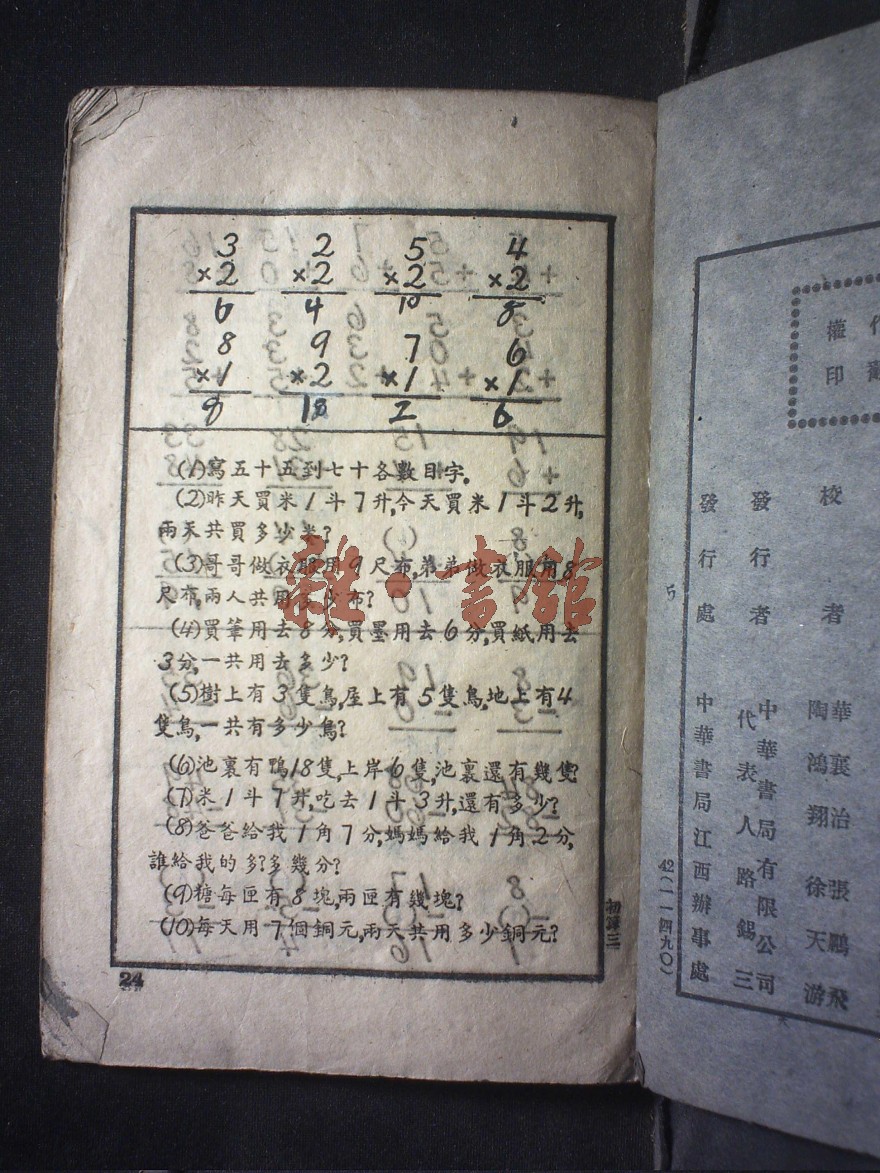 3 2 5 4
×2 ×2 ×2 ×2
6 4 10 8
8 9 7 6
×1 ×2 ×1 ×1
8 18 7 6
(1)寫五十五到七十各數目字。
(2)昨天買米1斗7升,今天買米1斗2升,
兩天共買多少米?
(3)哥哥做衣服用9尺布,弟弟做衣服用8
尺布,兩人共用多少布?
(4)買筆用去8分,買墨用去6分,買紙用去
3分,一共用去多少?
(5)樹上有3隻鳥,屋上有5隻鳥,地上有4
隻鳥,一共有多少鳥?
(6)池裏有鴨18隻,上岸6隻,池裏還有幾隻?
(7)米1斗7升,吃去1斗3升,還有多少?
(8)爸爸給我1角7分,媽媽給我1角2分,
誰給我的多?多幾分?
(9)糖每匣有8塊,兩匣有幾塊?
(10)每天用7個銅元,兩天共用多少銅元?
初算三
24
雜·書館
權印
校者 華襄治 張鵬飛
陶鴻翔 徐天游
發行者 中華書局有限公司
代表人 路錫三
發行處 中華書局江西辦事處
5
42(一一四九〇)